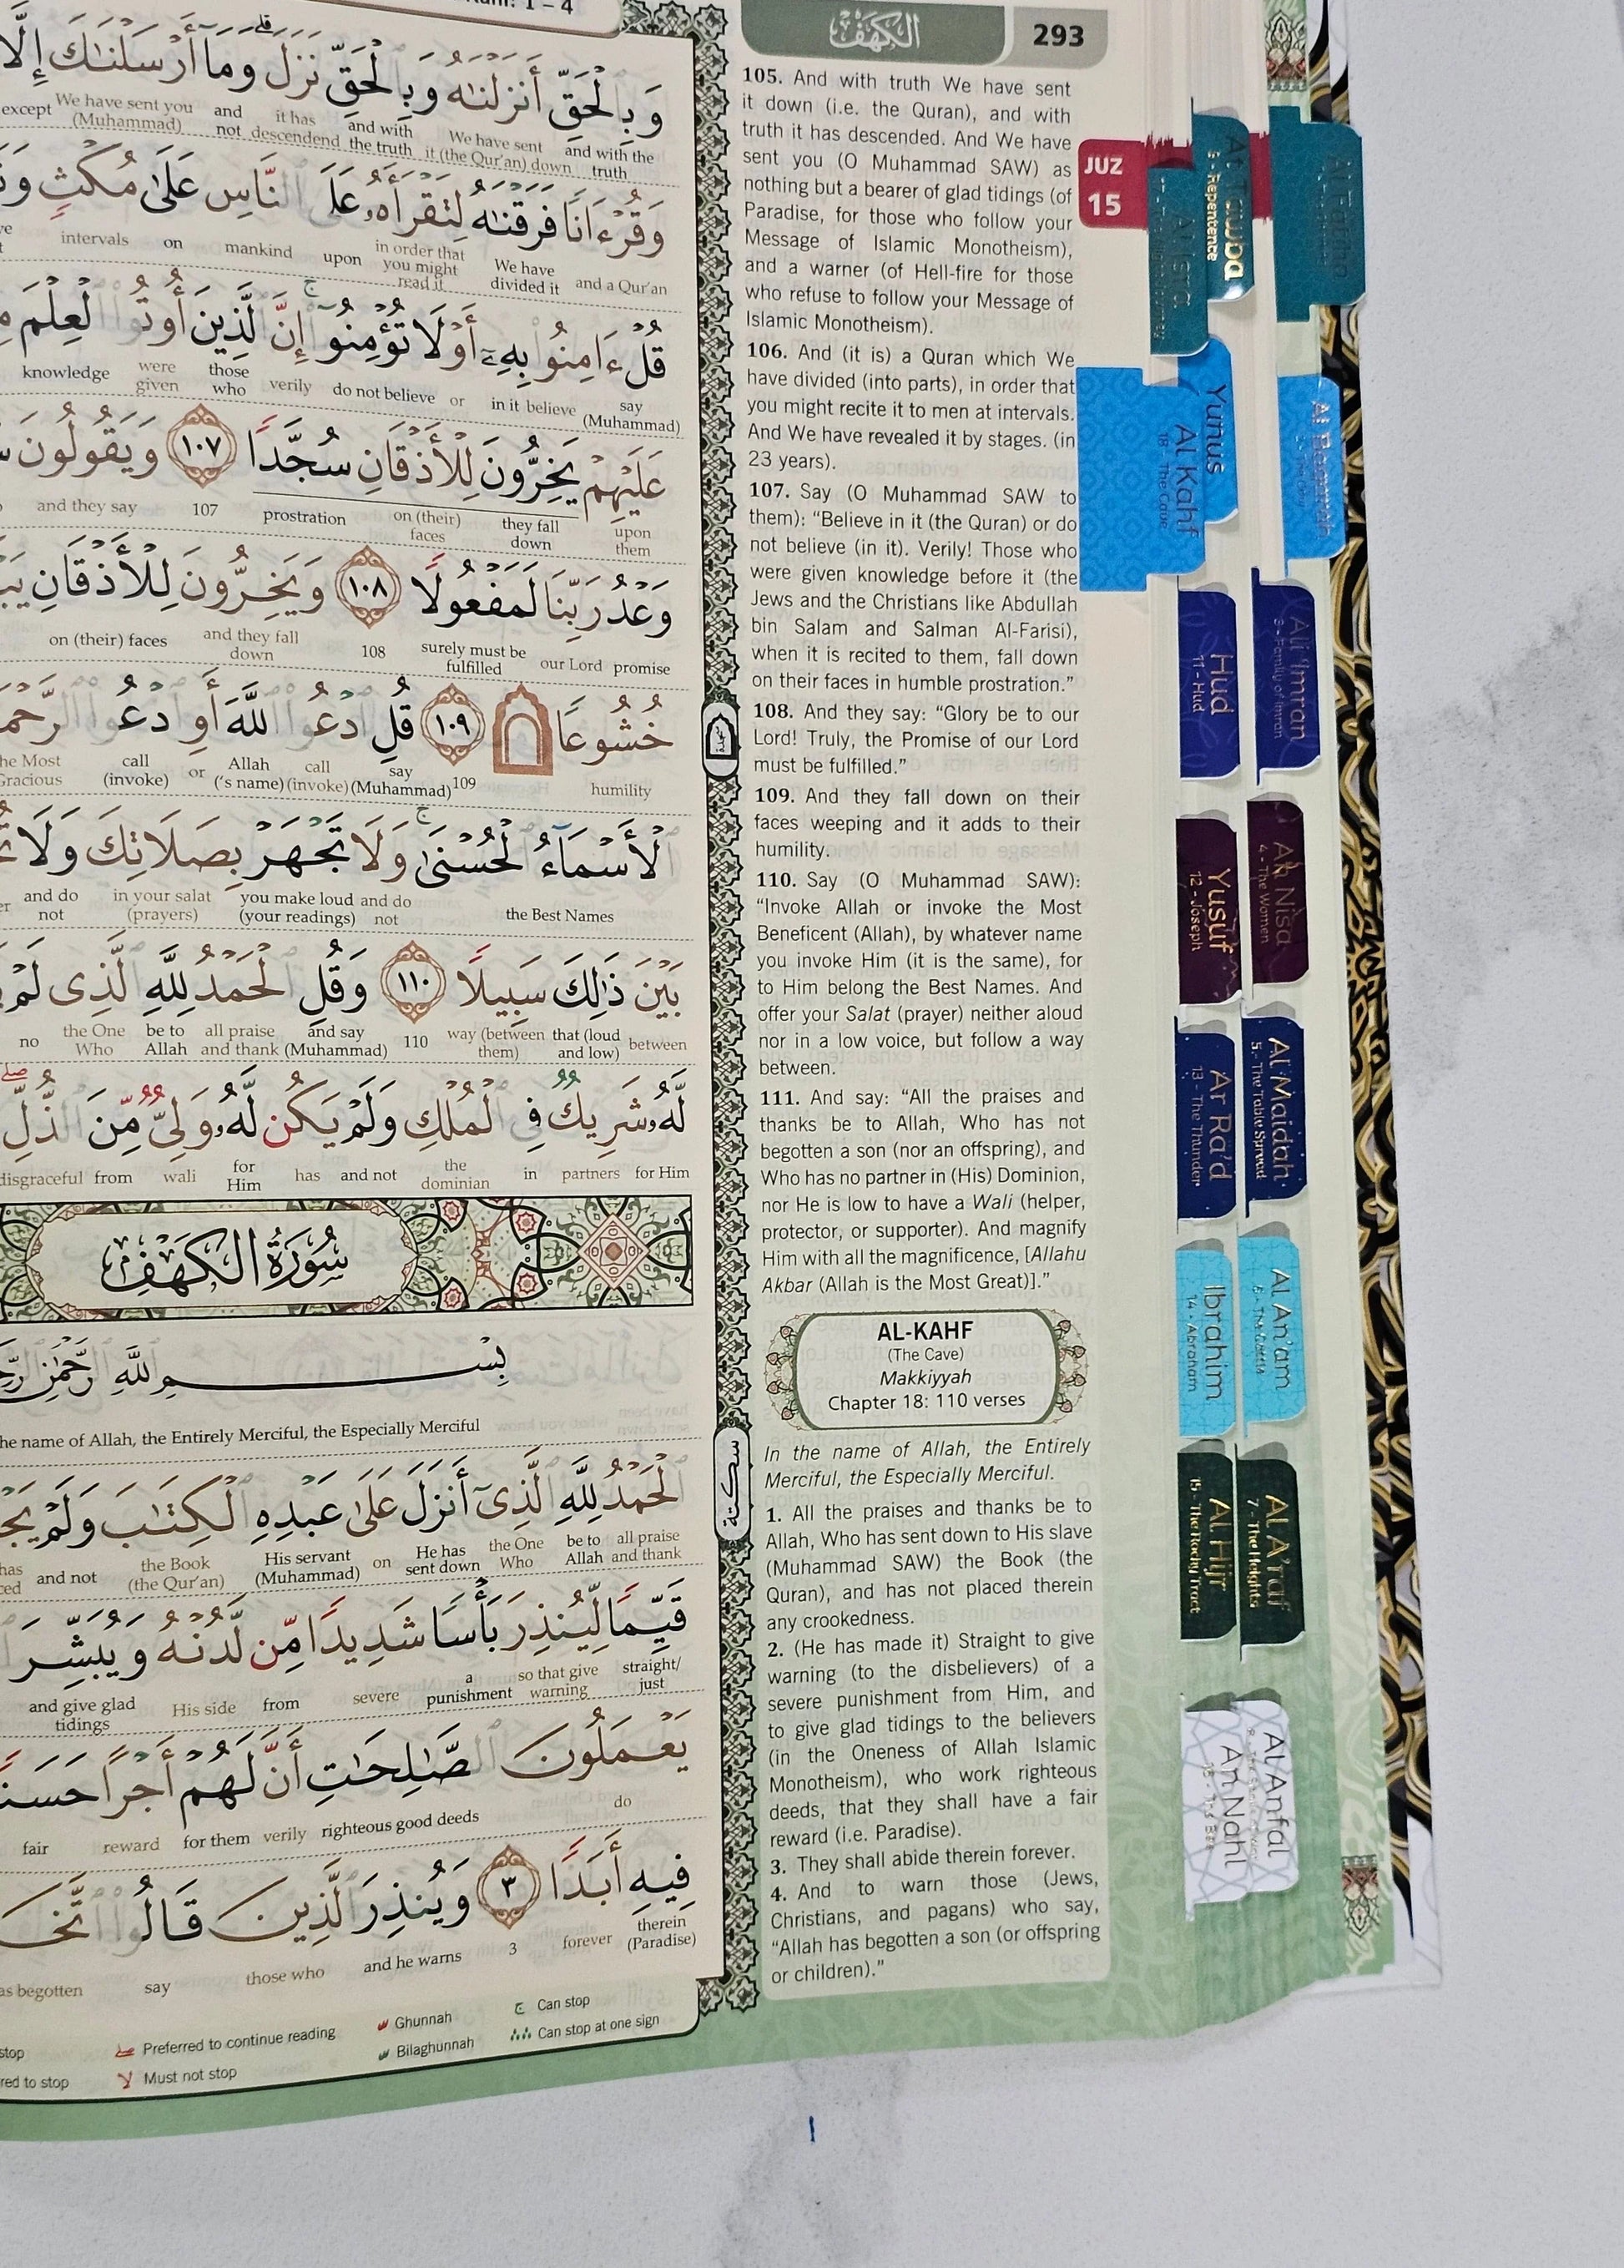 1 – 4
وَبِالْحَقِّ أَنزَلْنَٰهُ وَبِالْحَقِّ نَزَلَ ۗ وَمَآ أَرْسَلْنَٰكَ إِلَّا
and with the truth We have sent it (the Qur'an) down and with the truth it has descendend and not We have sent you (Muhammad) except
وَقُرْءَانًا فَرَقْنَٰهُ لِتَقْرَأَهُۥ عَلَى النَّاسِ عَلَىٰ مُكْثٍ
and a Qur'an We have divided it in order that you might read it upon mankind on intervals
قُلْ ءَامِنُوا بِهِۦٓ أَوْ لَا تُؤْمِنُوٓا ۚ إِنَّ الَّذِينَ أُوتُوا الْعِلْمَ
say (Muhammad) in it believe or do not believe verily those who were given knowledge
عَلَيْهِمْ يَخِرُّونَ لِلْأَذْقَانِ سُجَّدًا ١٠٧ وَيَقُولُونَ
upon them they fall down on (their) faces prostration 107 and they say
وَعْدُ رَبِّنَا لَمَفْعُولًا ١٠٨ وَيَخِرُّونَ لِلْأَذْقَانِ
promise our Lord surely must be fulfilled 108 and they fall down on (their) faces
خُشُوعًا ١٠٩ قُلِ ادْعُوا اللَّهَ أَوِ ادْعُوا
humility 109 say (Muhammad) call (invoke) Allah ('s name) or call (invoke) the Most Gracious
الْأَسْمَآءُ الْحُسْنَىٰ ۚ وَلَا تَجْهَرْ بِصَلَاتِكَ وَلَا
the Best Names and do not you make loud (your readings) in your salat (prayers) and do not
بَيْنَ ذَٰلِكَ سَبِيلًا ١١٠ وَقُلِ الْحَمْدُ لِلَّهِ الَّذِى لَمْ
between that (loud and low) way (between them) 110 and say (Muhammad) all praise and thank be to Allah the One Who no
لَّهُۥ شَرِيكٌ فِى الْمُلْكِ وَلَمْ يَكُن لَّهُۥ وَلِىٌّ مِّنَ الذُّلِّ ۖ
for Him partners in the dominian and not has for Him wali from disgraceful
سُورَةُ الْكَهْفِ
بِسْمِ اللَّهِ الرَّحْمَٰنِ
the name of Allah, the Entirely Merciful, the Especially Merciful
الْحَمْدُ لِلَّهِ الَّذِىٓ أَنزَلَ عَلَىٰ عَبْدِهِ الْكِتَٰبَ وَلَمْ
all praise and thank be to Allah the One Who He has sent down on His servant (Muhammad) the Book (the Qur'an) and not has
قَيِّمًا لِّيُنذِرَ بَأْسًا شَدِيدًا مِّن لَّدُنْهُ وَيُبَشِّرَ
straight/ just so that give warning a punishment severe from His side and give glad tidings
يَعْمَلُونَ الصَّٰلِحَٰتِ أَنَّ لَهُمْ أَجْرًا
do righteous good deeds verily for them reward fair
فِيهِ أَبَدًا ٣ وَيُنذِرَ الَّذِينَ قَالُوا
therein (Paradise) forever 3 and he warns those who say has begotten
stop
Preferred to continue reading
Ghunnah
ج Can stop
Must not stop
Bilaghunnah
Can stop at one sign
الكهف
293
105. And with truth We have sent
it down (i.e. the Quran), and with
truth it has descended. And We have
sent you (O Muhammad SAW) as
nothing but a bearer of glad tidings (of
Paradise, for those who follow your
Message of Islamic Monotheism),
and a warner (of Hell-fire for those
who refuse to follow your Message of
Islamic Monotheism).
106. And (it is) a Quran which We
have divided (into parts), in order that
you might recite it to men at intervals.
And We have revealed it by stages. (in
23 years).
107. Say (O Muhammad SAW to
them): “Believe in it (the Quran) or do
not believe (in it). Verily! Those who
were given knowledge before it (the
Jews and the Christians like Abdullah
bin Salam and Salman Al-Farisi),
when it is recited to them, fall down
on their faces in humble prostration.”
108. And they say: “Glory be to our
Lord! Truly, the Promise of our Lord
must be fulfilled.”
109. And they fall down on their
faces weeping and it adds to their
humility.
110. Say (O Muhammad SAW):
“Invoke Allah or invoke the Most
Beneficent (Allah), by whatever name
you invoke Him (it is the same), for
to Him belong the Best Names. And
offer your Salat (prayer) neither aloud
nor in a low voice, but follow a way
between.
111. And say: “All the praises and
thanks be to Allah, Who has not
begotten a son (nor an offspring), and
Who has no partner in (His) Dominion,
nor He is low to have a Wali (helper,
protector, or supporter). And magnify
Him with all the magnificence, [Allahu
Akbar (Allah is the Most Great)].”
AL-KAHF
(The Cave)
Makkiyyah
Chapter 18: 110 verses
In the name of Allah, the Entirely
Merciful, the Especially Merciful.
1. All the praises and thanks be to
Allah, Who has sent down to His slave
(Muhammad SAW) the Book (the
Quran), and has not placed therein
any crookedness.
2. (He has made it) Straight to give
warning (to the disbelievers) of a
severe punishment from Him, and
to give glad tidings to the believers
(in the Oneness of Allah Islamic
Monotheism), who work righteous
deeds, that they shall have a fair
reward (i.e. Paradise).
3. They shall abide therein forever.
4. And to warn those (Jews,
Christians, and pagans) who say,
“Allah has begotten a son (or offspring
or children).”
JUZ
15
At Tawba
9 - Repentence
Al Isra
Al Fatiha
Yunus
Al Kahf
18 - The Cave
Al Baqarah
Hud
11 - Hud
Ali 'Imran
3 - Family of Imran
Yusuf
12 - Joseph
An Nisa
4 - The Women
Ar Ra'd
13 - The Thunder
Al Maidah
5 - The Table Spread
Ibrahim
14 - Abraham
Al An'am
6 - The Cattle
Al Hijr
15 - The Rocky Tract
Al A'raf
7 - The Heights
Al Anfal
An Nahl